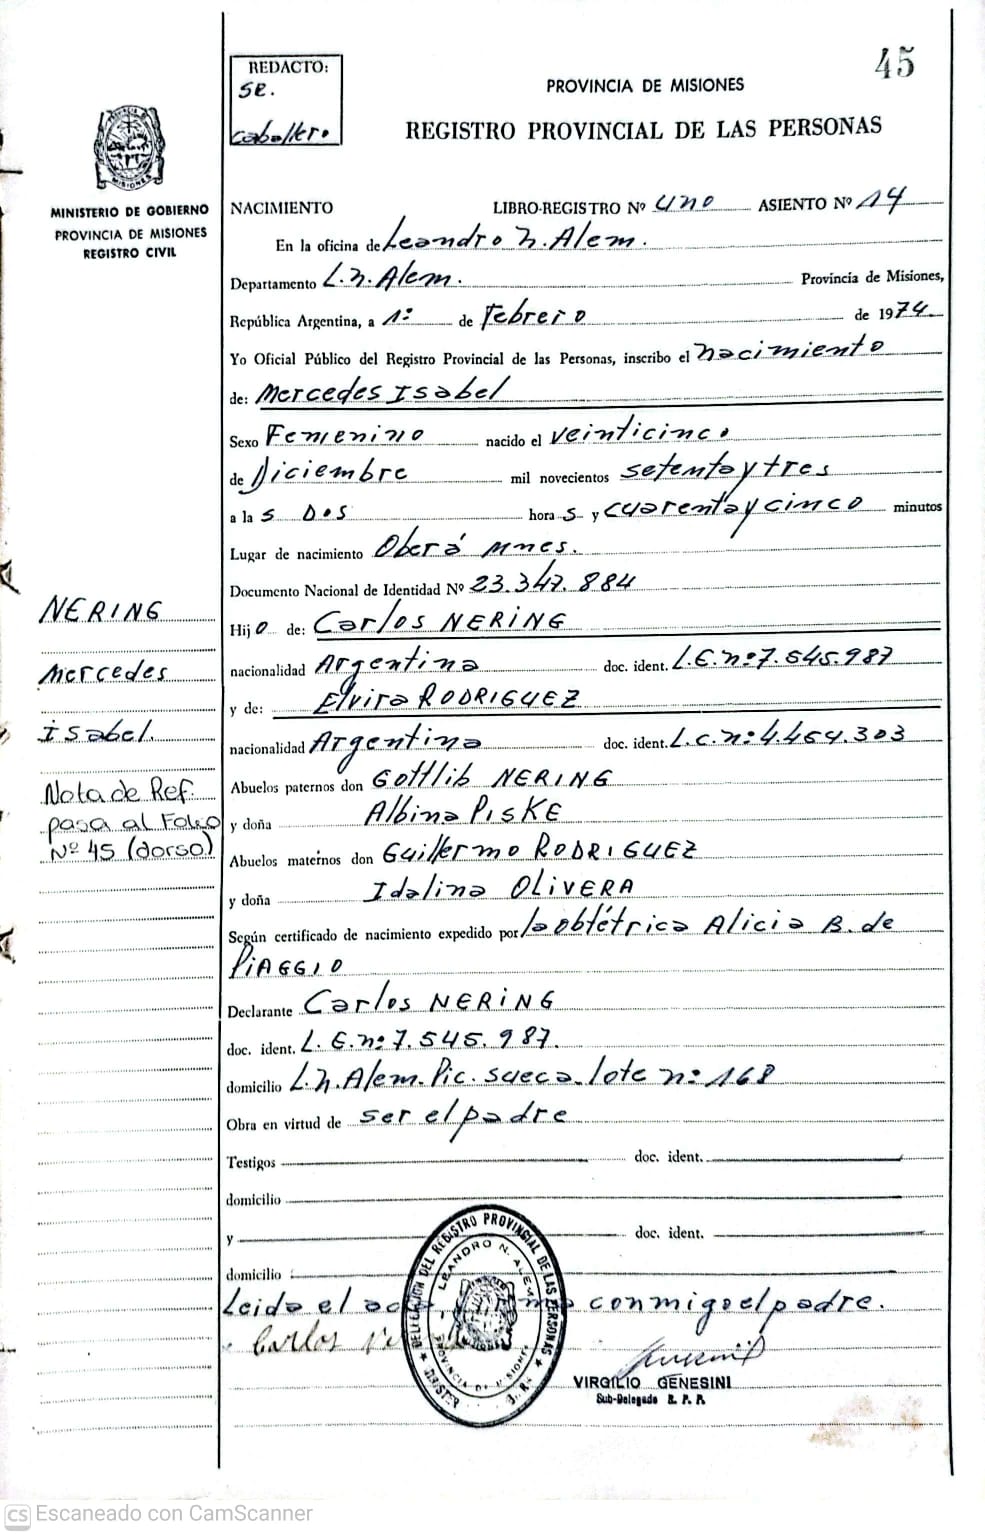 45
REDACTO:
SR.
Caballero
PROVINCIA DE MISIONES
REGISTRO PROVINCIAL DE LAS PERSONAS
MISIONES
MINISTERIO DE GOBIERNO
PROVINCIA DE MISIONES
REGISTRO CIVIL
NACIMIENTO LIBRO-REGISTRO Nº uno ASIENTO Nº 14
En la oficina de Leandro N. Alem.
Departamento L.N. Alem. Provincia de Misiones,
República Argentina, a 1º de Febrero de 1974
Yo Oficial Público del Registro Provincial de las Personas, inscribo el nacimiento
de: Mercedes Isabel
Sexo Femenino nacido el veinticinco
de Diciembre mil novecientos setenta y tres
a la s Dos hora s y cuarenta y cinco minutos
Lugar de nacimiento Oberá Mnes.
Documento Nacional de Identidad Nº 23.347.884
Hij o de: Carlos NERING
nacionalidad Argentina doc. ident. L.E. nº 7.545.987
y de: Elvira RODRIGUEZ
nacionalidad Argentina doc. ident. L.C. nº 4.464.303
Abuelos paternos don Gottlib NERING
y doña Albina PISKE
Abuelos maternos don Guillermo RODRIGUEZ
y doña Idalina OLIVERA
Según certificado de nacimiento expedido por la obtétrica Alicia B. de
PIAGGIO
Declarante Carlos NERING
doc. ident. L.E. nº 7.545.987.
domicilio L.N. Alem. Pic. sueca. lote nº 168
Obra en virtud de ser el padre
Testigos doc. ident.
domicilio
y doc. ident.
domicilio
Leida el conmigo el padre.
Carlos
NERING
Mercedes
Isabel.
Nota de Ref.
pasa al Folio
Nº 45 (dorso)
DELEGACION DEL REGISTRO PROVINCIAL DE LAS PERSONAS
LEANDRO N. ALEM
PROVINCIA DE MISIONES
VIRGILIO GENESINI
Sub-Delegado R. P. P.
CS Escaneado con CamScanner